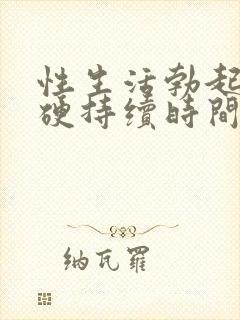 性生活勃起
硬持續時間
納瓦羅